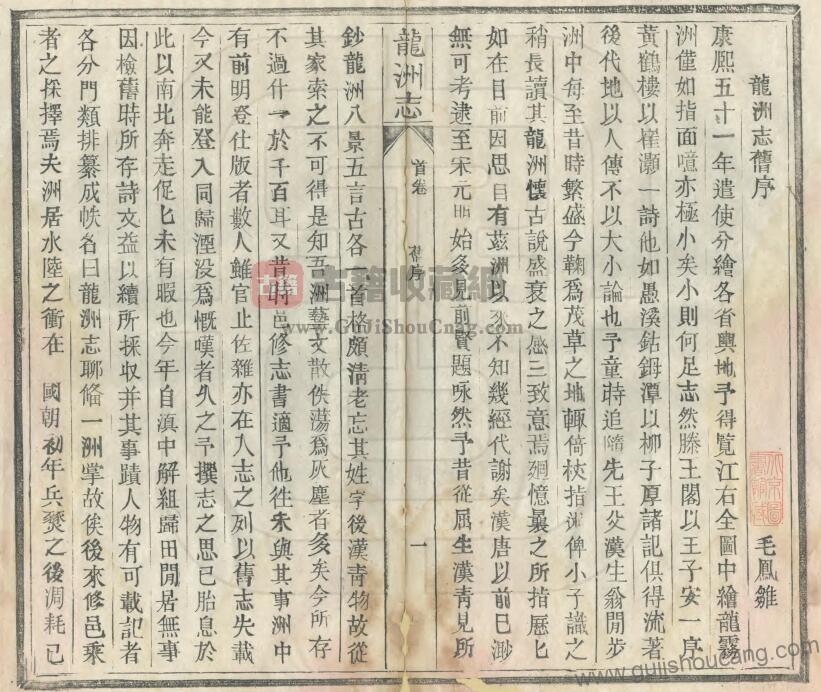 龍洲志舊序
毛鳳雛
康熙五十一年遣使分繪各省輿地予得覧江右全圖中繪龍霧
洲僅如指面噫亦極小矣小則何足志然滕王閣以王子安一序
黃鶴樓以崔灝一詩他如愚溪鈷鉧潭以柳子厚諸記俱得流著
後代地以人傳不以大小論也予童時追隨先王父漢生翁閒步
洲中每至昔時繁盛今鞠爲茂草之地輒倚杖指洲俾小子識之
稍長讀其龍洲懷古說盛衰之感三致意焉廻憶曩之所指歷匕
如在目前因思目有茲洲以來不知幾經代謝矣漢唐以前已渺
無可考逮至宋元明始多見前賢題咏然予昔從屈生漢青見所
龍洲志
首卷
舊序
一
鈔龍洲八景五言古各一首格頗淸老忘其姓字後漢青物故從
其家索之不可得是知吾洲藝文散佚蕩爲灰塵者多矣今所存
不過什一於千百耳又昔時邑修志書適予他往未與其事洲中
有前明登仕版者數人雖官止佐雜亦在入志之列以舊志失載
今又未能登入同歸湮没爲慨嘆者久之予撰志之思已胎息於
此以南北奔走促匕未有暇也今年自滇中解組歸田閒居無事
因檢舊時所存詩文益以續所採収并其事蹟人物有可載記者
各分門類排纂成帙名曰龍洲志聊備一洲掌故俟後來修邑乘
者之採擇焉夫洲居水陸之衝在 國朝初年兵燹之後凋耗已
古籍
古籍收藏網
www.GuJiShouCang.com
www.gujishoucang.com